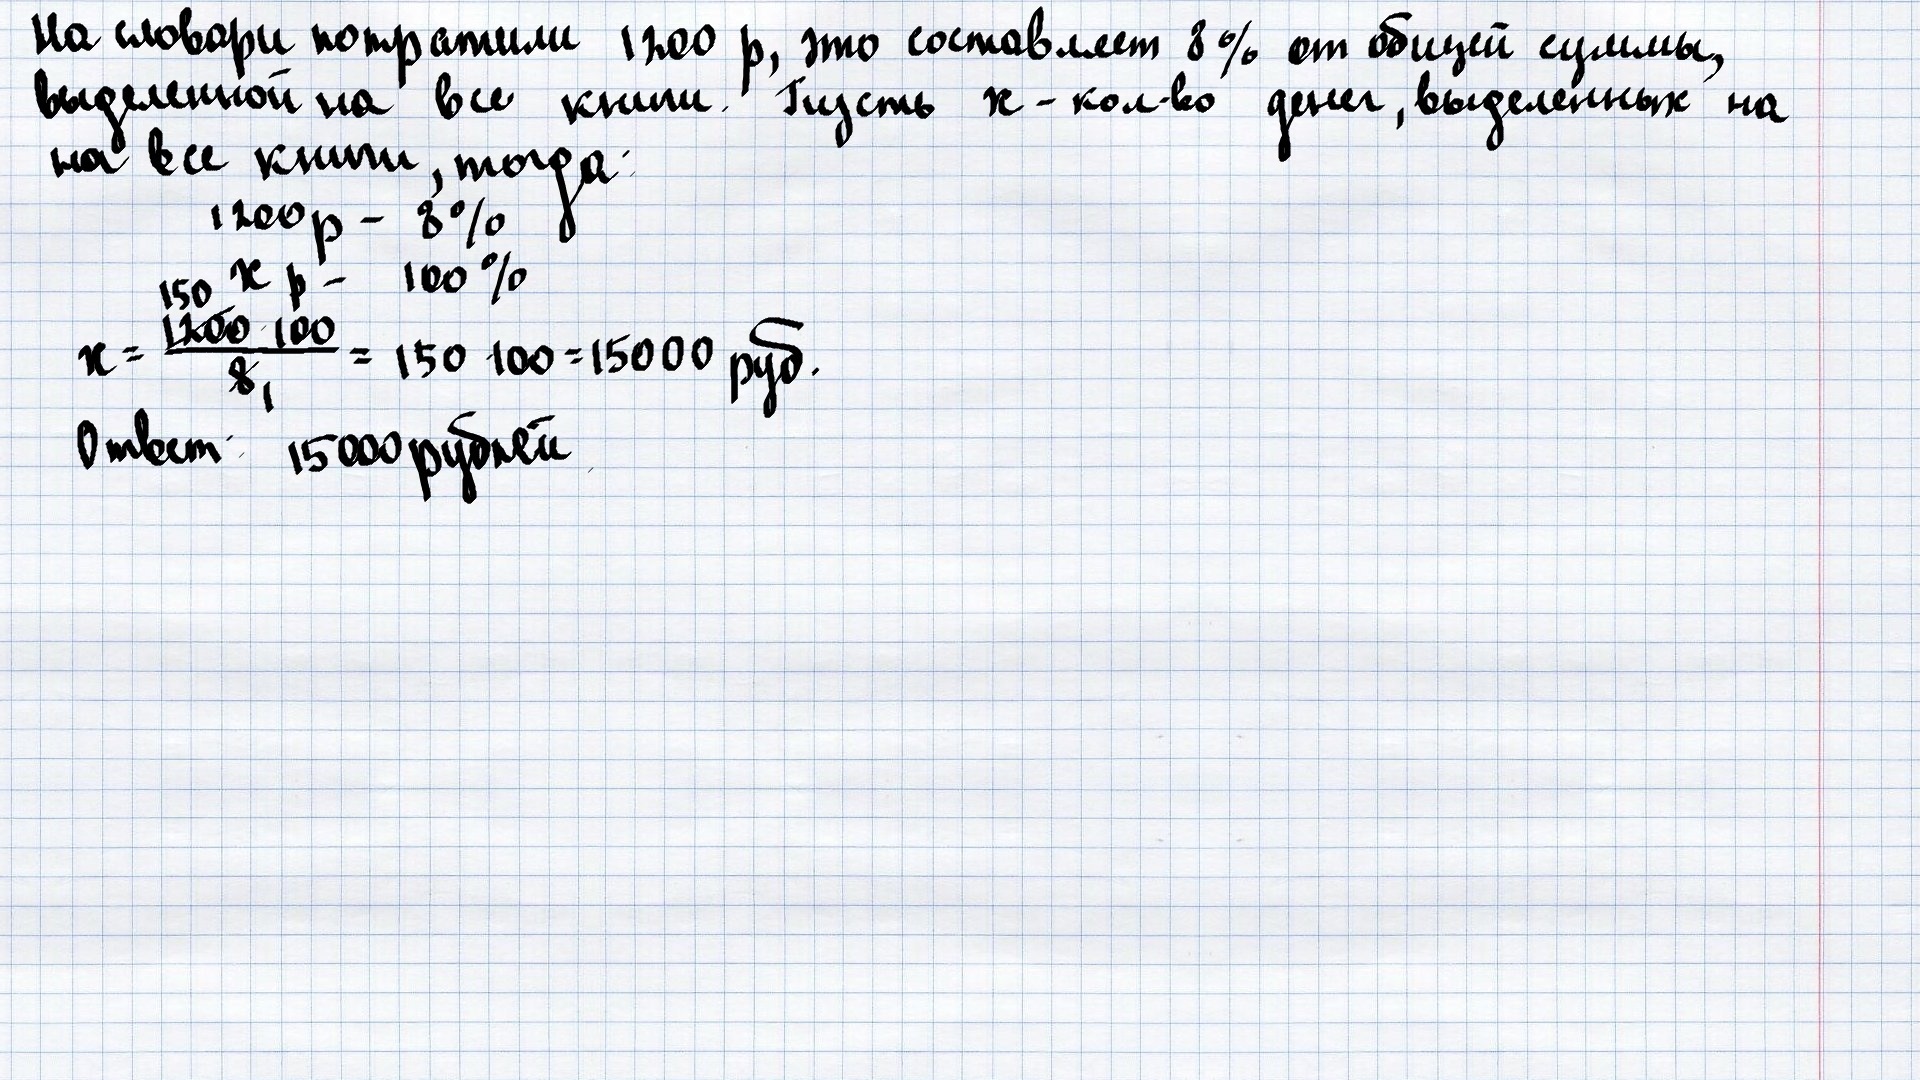 На словари потратили 1200 р, это составляет 8% от общей суммы,
выделенной на все книги. Пусть x - кол-во денег, выделенных на
на все книги, тогда:
1200 р - 8%
x р - 100%
150
x = 1200 · 100 / 8 1 = 150 · 100 = 15000 руб.
Ответ: 15000 рублей